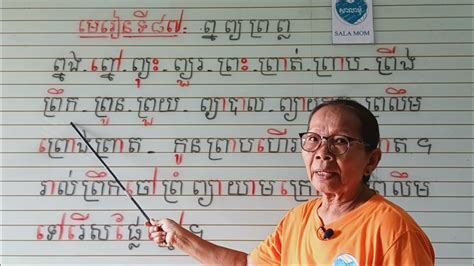 មេរៀនទី៨៧: ព្ន ព្យ ព្រ ព្ល
សាលាម៉ុំ
SALA MOM
ព្នង. ព្នៅ. ព្យុះ. ព្យួរ. ព្រះ. ព្រាត់. ព្រាប. ព្រឹង
ព្រឹក. ព្រួន. ព្រួយ. ព្យាបាល. ព្រលឹម
ព្រោងព្រាត. កូនព្រាបហើរ ព្រាត ។
រាល់ព្រឹកចៅ ព្រំ ព្យាយាម ព្រលឹម
ទៅរើសផ្លែ ។